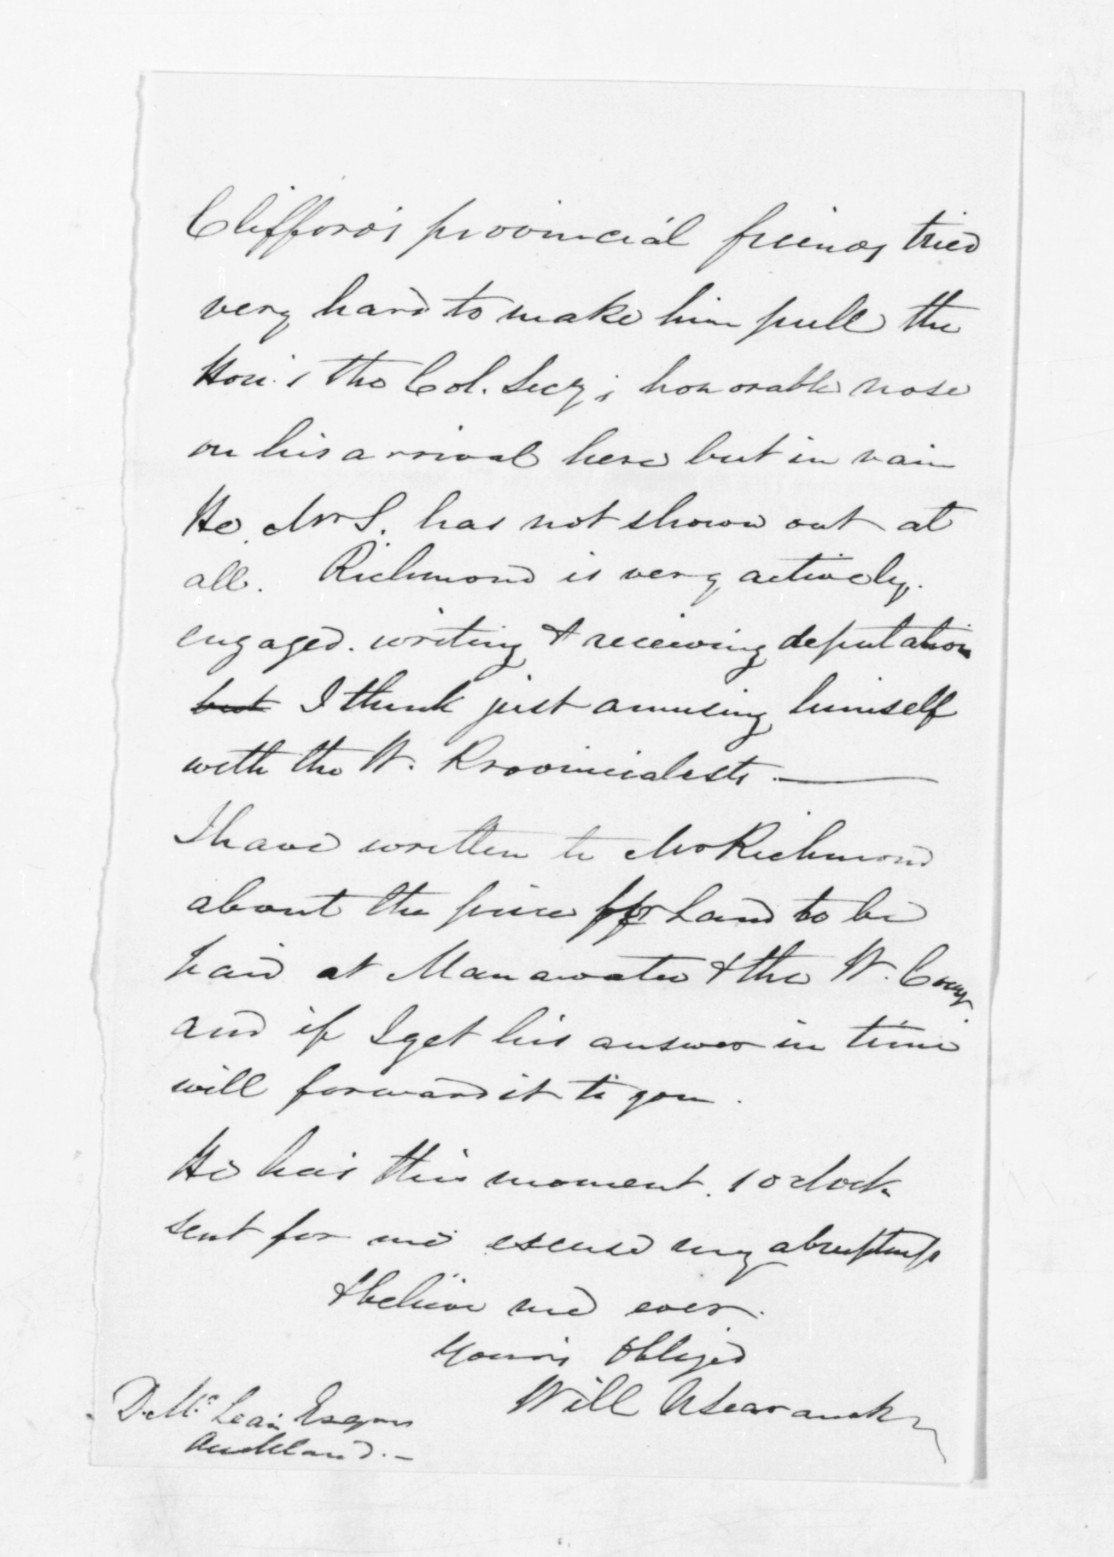 Clifford's provincial friends tried
very hard to make him pull the
Hon. the Col. Secy's honorable nose
on his arrival here but in vain
He Mr S. has not shown out at
all. Richmond is very actively
engaged. writing & receiving deputation
but I think just amusing himself
with the W. Provincialists.
I have written to Mr Richmond
about the price for Land to be
had at Manawatu & the W. Coy
and if I get his answer in time
will forward it to you.
He has this moment. 1 oclock
sent for me excuse my abruptness
& believe me ever.
Yours obliged
Will
D. McLean Esqre
Auckland.